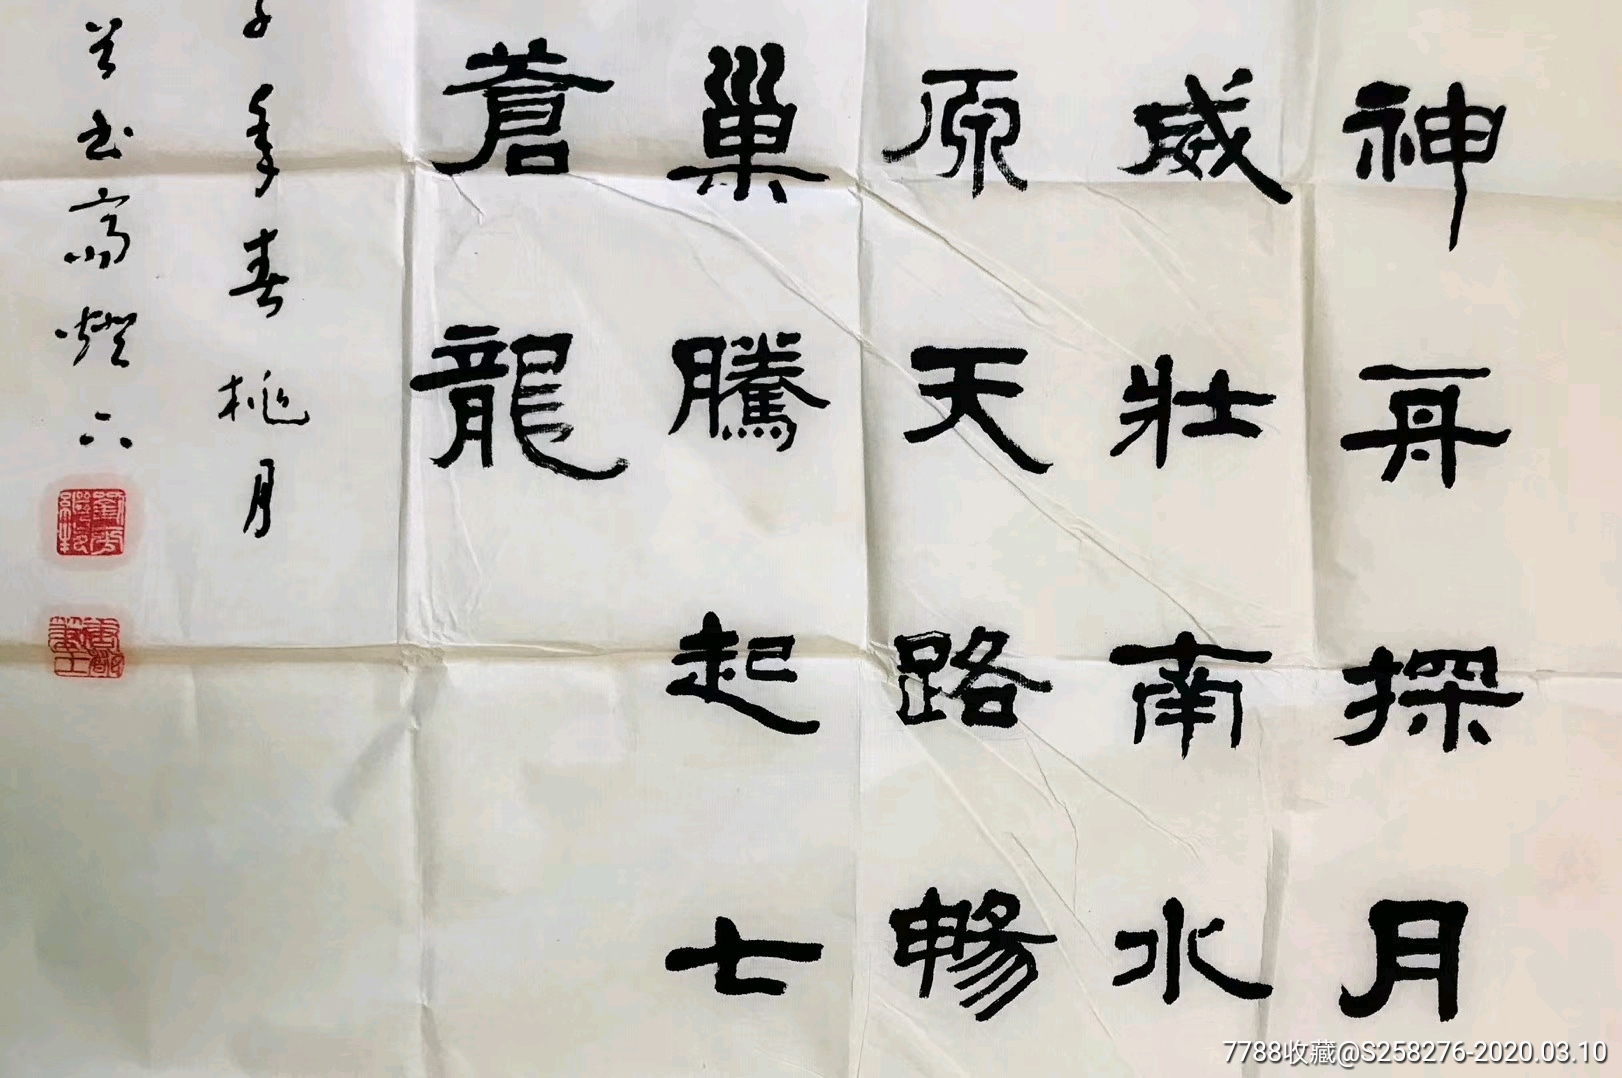 神舟探月
威壮南水
原天路暢
巢騰起七
蒼龍
子年春桃月
书高灯下
7788收藏@S258276-2020.03.10